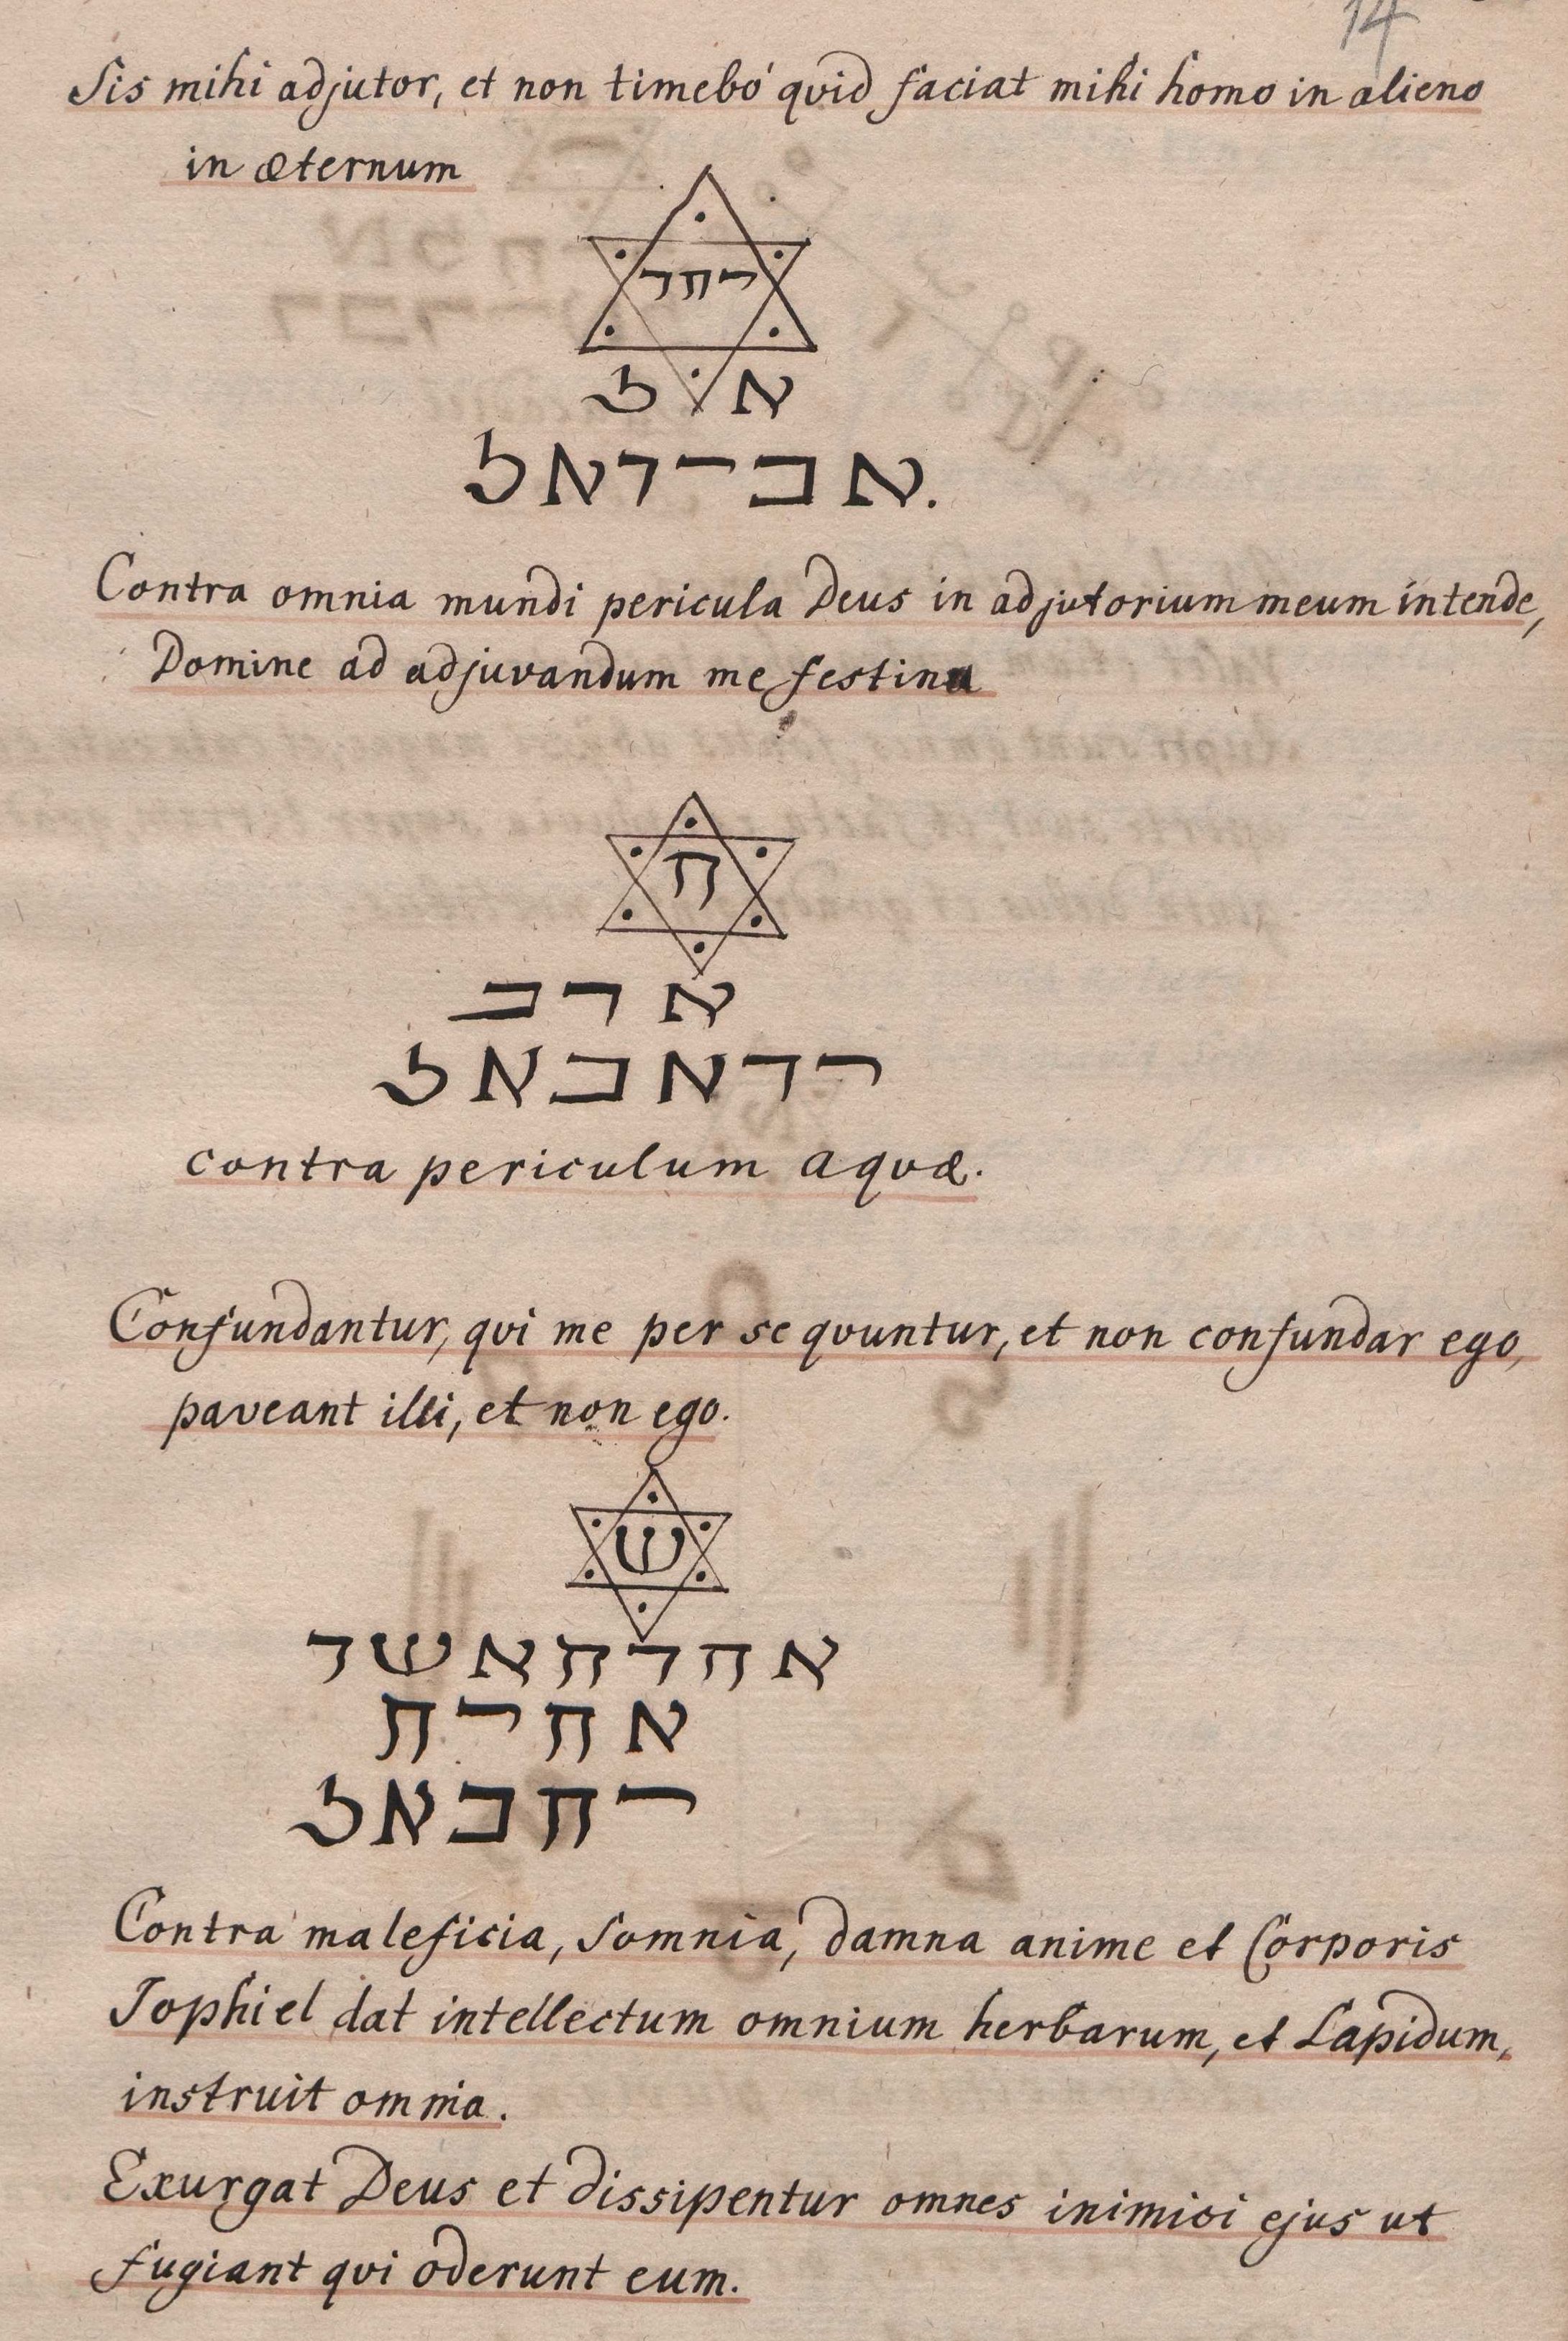 14
Sis mihi adjutor, et non timebo quid faciat mihi homo in alieno
in æternum
רחד
א לֹ
אברדאל.
Contra omnia mundi pericula Deus in adjutorium meum intende,
Domine ad adjuvandum me festina
ח
א ד כ
רדאכאל
contra periculum aquæ.
Confundantur, qui me per se quuntur, et non confundar ego,
paveant illi, et non ego.
ש
אחדחאשד
אחרח
רחכאל
Contra maleficia, somnia, damna anime et Corporis
Jophiel dat intellectum omnium herbarum, et Lapidum,
instruit omnia.
Exurgat Deus et dissipentur omnes inimici ejus ut
fugiant qui oderunt eum.